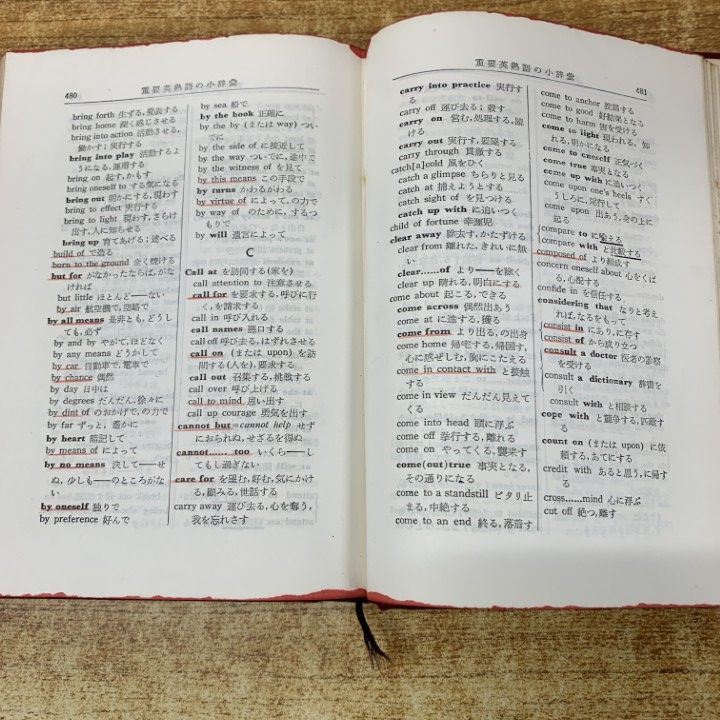 480
重要英熟語の小辞彙
bring forth 生ずる, 発表する
bring home 深く感じさせる
bring into action 活動させる,
働かす; 実行する
bring into play 活動するよ
うになる, 運用する
bring on 起す, かもす
bring oneself to する気になる
bring out 明かにする, 現わす
bring to effect 実行する
bring to light 現わす, さらけ
出す, 人に知らせる
bring up 育てあげる; 述べる
build of で造る
burn to the ground 全く焼ける
but for がなかったならば, がな
ければ
but little ほとんど—ない
by air 航空機で, 空路で
by all means 是非とも, どうし
ても, 必ず
by and by やがて, ほどなく
by any means どうかして
by car 自動車で, 電車で
by chance 偶然
by day 日中は
by degrees だんだん, 徐々に
by dint of のおかげで, の力で
by far ずっと, 遙かに
by heart 暗記して
by means of によって
by no means 決して—せ
ぬ, 少しも—のところがな
い
by oneself 独りで
by preference 好んで
by sea 船で
by the book 正確に
by the by (または way) つい
でに
by the side of に接近して
by the way ついでに, 途中で
by the witness of を見て
by this means この手段で
by turns かわるがわる
by virtue of によって, の力で
by way of のために, するつ
もりで
by will 遺言によって
C
Call at を訪問する(家を)
call attention to 注意させる
call for を要求する, 呼びに行
く, を請求する
call in 呼び入れる
call names 悪口する
call off 呼び去る, はずれさせる
call on (または upon) を訪
問する(人を), 要求する
call out 召集する, 挑戦する
call over 呼び上げる
call to mind 思い出す
call up courage 勇気を出す
cannot but = cannot help せず
におられぬ, せざるを得ぬ
cannot…… too いくら—し
てもし過ぎない
care for を望む, 好む, 気にかけ
る, 顧みる, 世話する
carry away 運び去る, 心を奪う,
我を忘れさす
重要英熟語の小辞彙
481
carry into practice 実行す
る
carry off 運び去る; 殺す
carry on 営む, 処理する, 続
ける
carry out 実行す, 要望する
carry through 貫徹する
catch[a]cold 風をひく
catch a glimpse ちらりと見る
catch at 捕えようとする
catch sight of を見つける
catch up with に追いつく
child of fortune 幸運児
clear away 除去す, かたずける
clear from 離れた, きれいに無
い
clear……of より—を除く
clear up 晴れる, 明白にする
come about 起こる, できる
come across 偶然出あう
come at に達する, 獲る
come from より出る, の出身
come home 帰宅する, 帰国す,
心に感ぜしむ, 胸にこたえる
come in contact with と接触
する
come in view だんだん見えて
くる
come into head 頭に浮ぶ
come off 挙行する, 離れる
come on やってくる, 襲来す
come(out)true 事実となる,
その通りになる
come to a standstill ピタリ止
まる, 中絶する
come to an end 終る, 落着す
come to anchor 投錨する
come to good 好結果となる
come to harm 害を受ける
come to light 現われる, 知
れる, 明かになる
come to oneself 正気づく
come true 事実となる
come up with に追いつく
come upon one's heels すぐ
うしろに, 尾行して
come upon 出あう, 身の上に
起る
compare to に喩える
compare with と比較する
composed of より組成す
concern oneself about 心をくば
る, 心配する
confide in を信任する
considering that なりと考え
れば, なるをもって
consist in にあり, に存す
consist of から成り立つ
consult a doctor 医者の診察
を受ける
consult a dictionary 辞書を
引く
consult with と相談する
cope with と競争する, 匹敵す
る
count on (または upon) に依
頼する, あてにする
credit with あると思う, に帰す
る
cross……mind 心に浮ぶ
cut off 絶つ, 離す